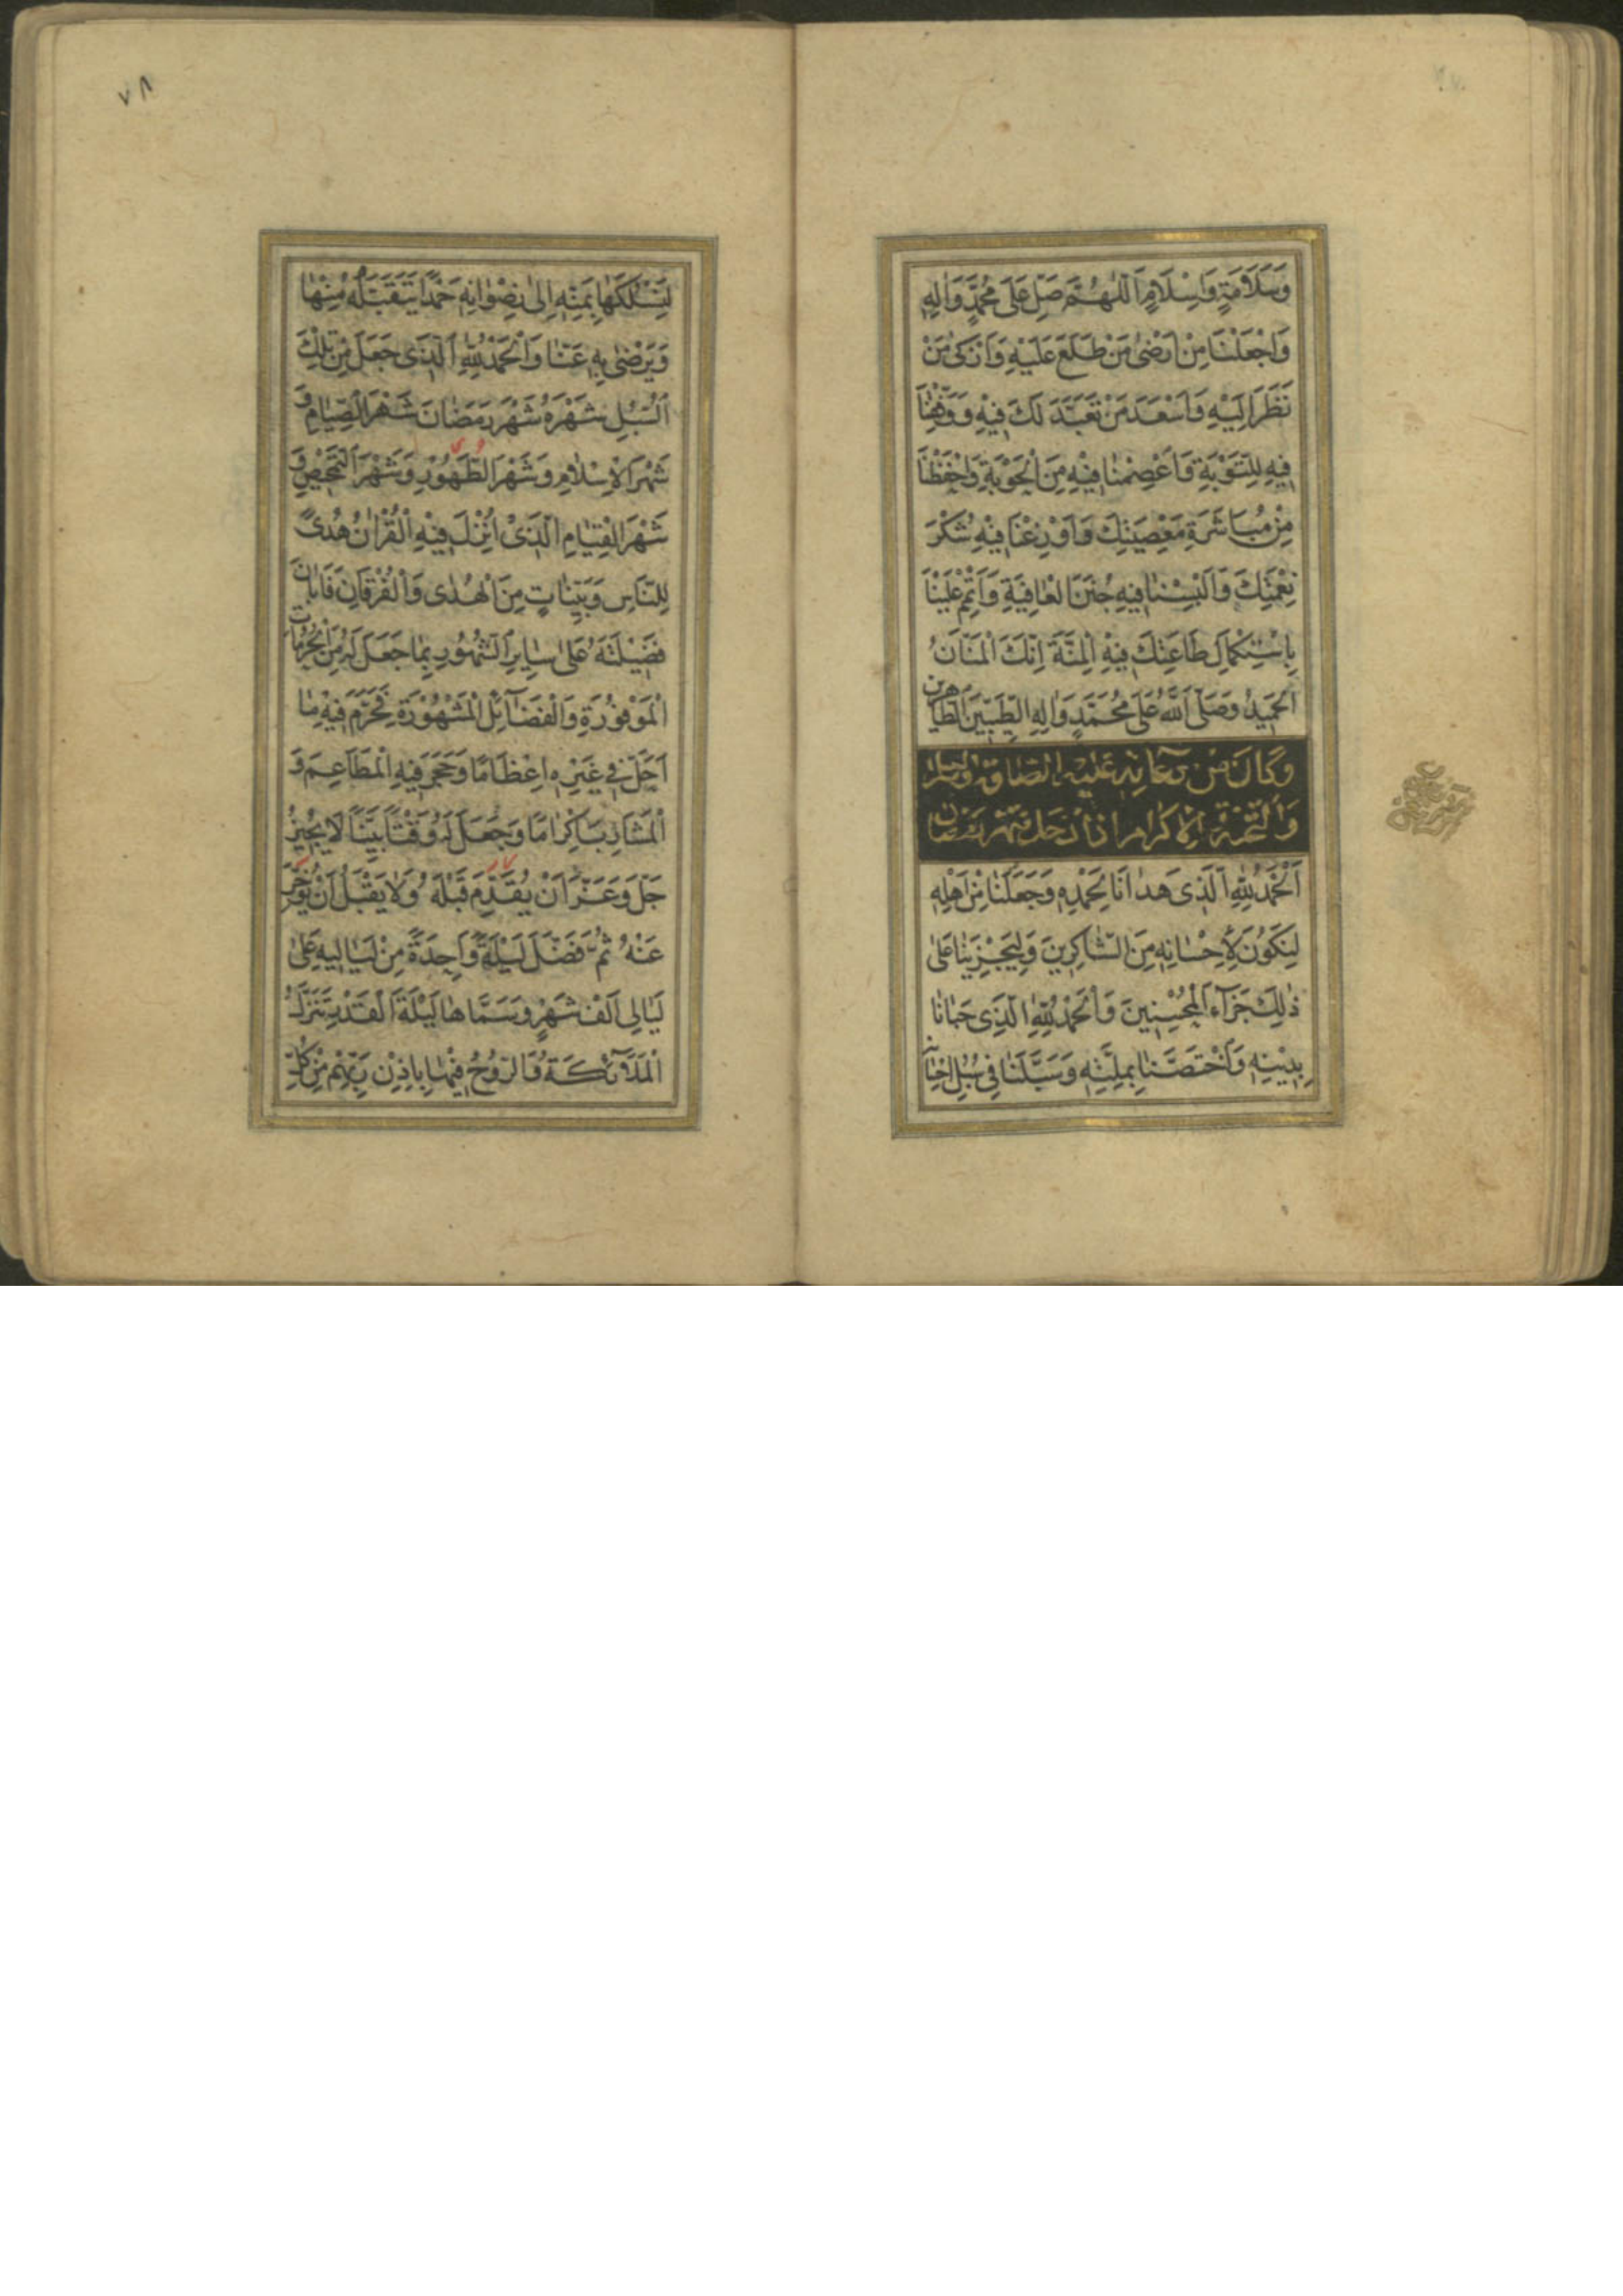 وَسَلَامَةٍ وَاِسْلَامٍ اَللّٰهُمَّ صَلِّ عَلٰى مُحَمَّدٍ وَاٰلِهِ
وَاجْعَلْنَا مِنْ اَرْضٰى مَنْ طَلَعَ عَلَيْهِ وَاَزْكٰى مَنْ
نَظَرَ اِلَيْهِ وَاَسْعَدَ مَنْ تَعَبَّدَ لَكَ فِيْهِ وَوَفِّقْنَا
فِيْهِ لِلتَّوْبَةِ وَاعْصِمْنَا فِيْهِ مِنَ الْحَوْبَةِ وَاحْفَظْنَا
مِنْ مُبَاشَرَةِ مَعْصِيَتِكَ وَاَوْزِعْنَا فِيْهِ شُكْرَ
نِعْمَتِكَ وَاَلْبِسْنَا فِيْهِ جُنَنَ الْعَافِيَةِ وَاَتْمِمْ عَلَيْنَا
بِاسْتِكْمَالِ طَاعَتِكَ فِيْهِ الْمِنَّةَ اِنَّكَ الْمَنَّانُ
الْحَمِيْدُ وَصَلَّى اللّٰهُ عَلٰى مُحَمَّدٍ وَاٰلِهِ الطَّيِّبِيْنَ الطَّاهِرِيْنَ
وَكَانَ مِنْ دُعَائِهِ عَلَيْهِ الصَّلٰوة
وَالتَّحِيَّة وَالْاِكْرَام اِذَا دَخَلَ شَهْرُ رَمَضَان
اَلْحَمْدُ لِلّٰهِ الَّذِى هَدَانَا لِحَمْدِهِ وَجَعَلَنَا مِنْ اَهْلِهِ
لِنَكُوْنَ لِاِحْسَانِهِ مِنَ الشَّاكِرِيْنَ وَلِيَجْزِيَنَا عَلٰى
ذٰلِكَ جَزَاءَ الْمُحْسِنِيْنَ وَالْحَمْدُ لِلّٰهِ الَّذِى حَبَانَا
بِدِيْنِهِ وَاخْتَصَّنَا بِمِلَّتِهِ وَسَبَّلَنَا فِى سُبُلِ اِحْسَانِهِ
٧٨
لِنَسْلُكَهَا بِمَنِّهِ اِلٰى رِضْوَانِهِ حَمْدًا يَتَقَبَّلُهُ مِنْهَا
وَيَرْضٰى بِهِ عَنَّا وَالْحَمْدُ لِلّٰهِ الَّذِى جَعَلَ مِنْ تِلْكَ
السُّبُلِ شَهْرَهُ شَهْرَ رَمَضَانَ شَهْرَ الصِّيَامِ وَ
شَهْرَ الْاِسْلَامِ وَشَهْرَ الطَّهُوْرِ وَشَهْرَ التَّمْحِيْصِ وَ
شَهْرَ الْقِيَامِ الَّذِىْ اُنْزِلَ فِيْهِ الْقُرْاٰنُ هُدًى
لِلنَّاسِ وَبَيِّنَاتٍ مِنَ الْهُدٰى وَالْفُرْقَانِ فَاَبَانَ
فَضِيْلَتَهُ عَلٰى سَايِرِ الشُّهُوْرِ بِمَا جَعَلَ لَهُ مِنَ الْحُرُمَاتِ
الْمَوْفُوْرَةِ وَالْفَضَائِلِ الْمَشْهُوْرَةِ فَحَرَّمَ فِيْهِ مَا
اَحَلَّ فِى غَيْرِهِ اِعْظَامًا وَحَجَرَ فِيْهِ الْمَطَاعِمَ وَ
الْمَشَارِبَ اِكْرَامًا وَجَعَلَ لَهُ وَقْتًا بَيِّنًا لَا يُجِيْزُ
جَلَّ وَعَزَّ اَنْ يُقَدَّمَ قَبْلَهُ وَلَا يَقْبَلُ اَنْ يُؤَخَّرَ
عَنْهُ ثُمَّ فَضَّلَ لَيْلَةً وَاحِدَةً مِنْ لَيَالِيْهِ عَلٰى
لَيَالِى اَلْفِ شَهْرٍ وَسَمَّاهَا لَيْلَةَ الْقَدْرِ تَنَزَّلُ
الْمَلَائِكَةُ وَالرُّوْحُ فِيْهَا بِاِذْنِ رَبِّهِمْ مِنْ كُلِّ